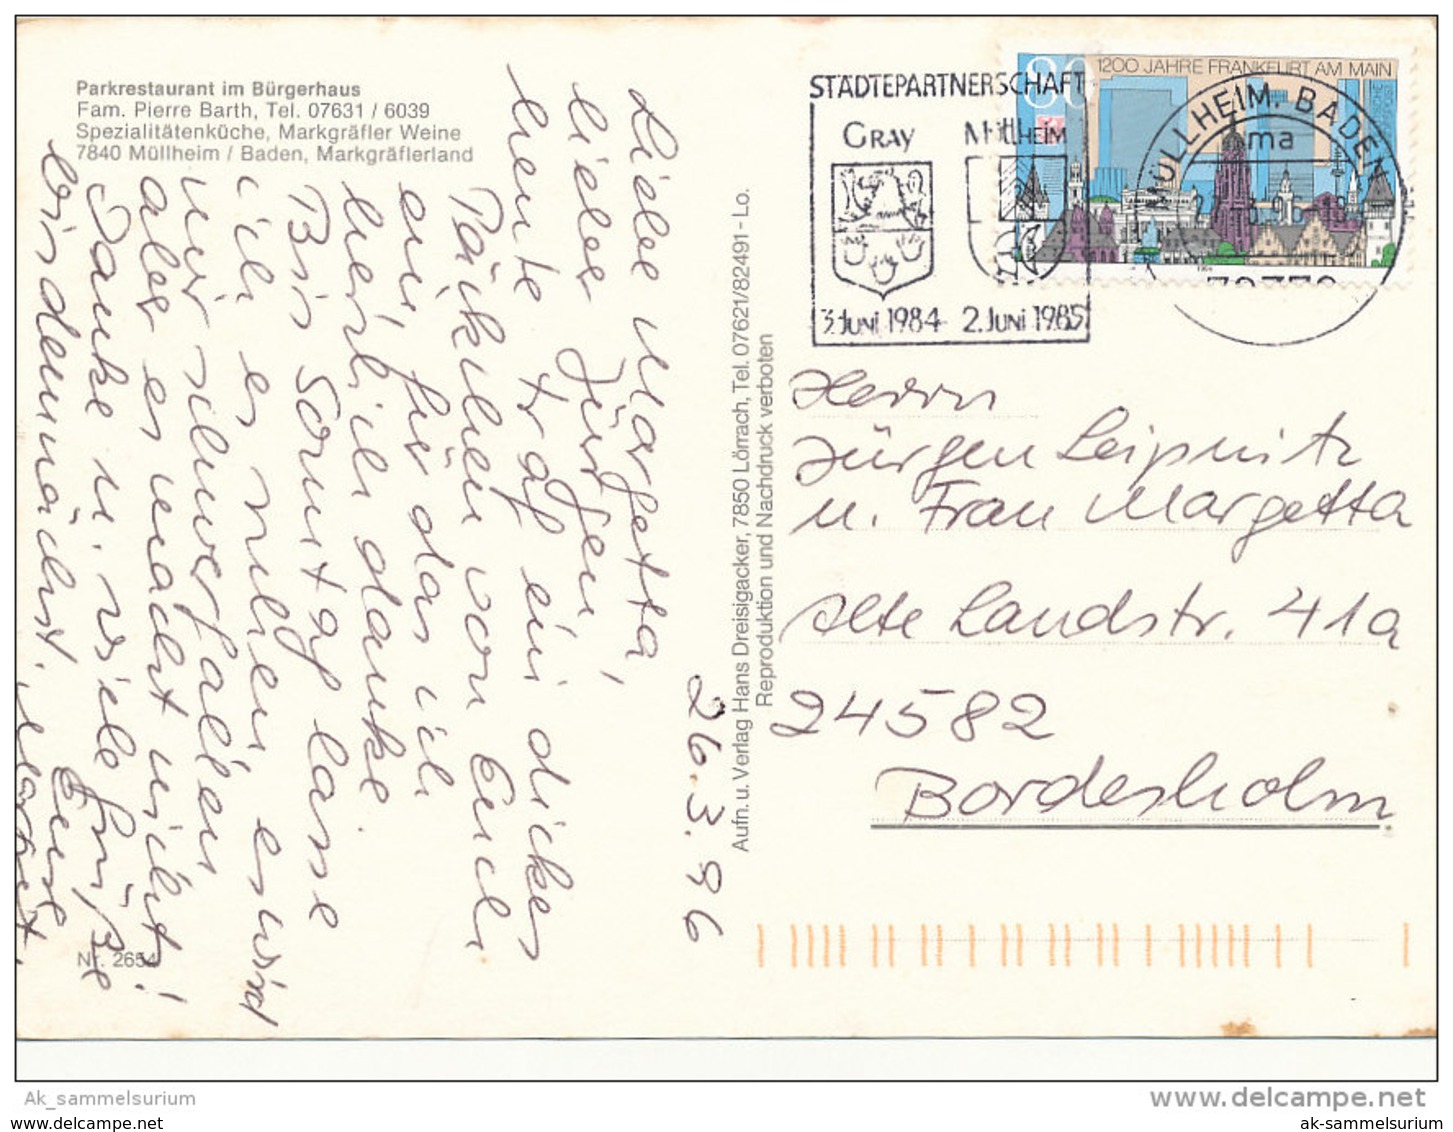 Parkrestaurant im Bürgerhaus
Fam. Pierre Barth, Tel. 07631 / 6039
Spezialitätenküche, Markgräfler Weine
7840 Müllheim / Baden, Markgräflerland
26.3.96
Liebe Margetta,
lieber Jürgen,
heute traf ein dickes
Päckchen von Euch
ein, für das ich
herzlich danke.
Bis Sonntag lasse
ich es ruhen, es wird
mir schwerfallen
aber es macht nichts!
Danke u. viele Grüße
bis demnächst. Eure
Nr. 2654
Aufn. u. Verlag Hans Dreisigacker, 7850 Lörrach, Tel. 07621/82491 - Lo.
Reproduktion und Nachdruck verboten
STÄDTEPARTNERSCHAFT
GRAY MÜLLHEIM
3. JUNI 1984 2. JUNI 1985
80
1200 JAHRE FRANKFURT AM MAIN
MÜLLHEIM, BADEN
ma
79379
Herrn
Jürgen Leipnitz
u. Frau Margetta
Alte Landstr. 41a
24582
Bordesholm
Ak_sammelsurium
www.delcampe.net
www.delcampe.net
ak-sammelsurium